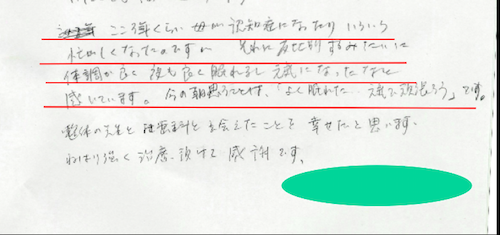 ここ1年くらい 母が認知症になったり いろいろ
忙しくなったのですが それに反比例するみたいに
体調が良く 夜も良く眠れるし 元気になったなと
感じています。 今の朝思うことは、「よく眠れた… 元気で頑張ろう」です。
整体の先生と 出会えたことを 幸せだと思います。
ねばり強く 治療 頂けて 感謝です。